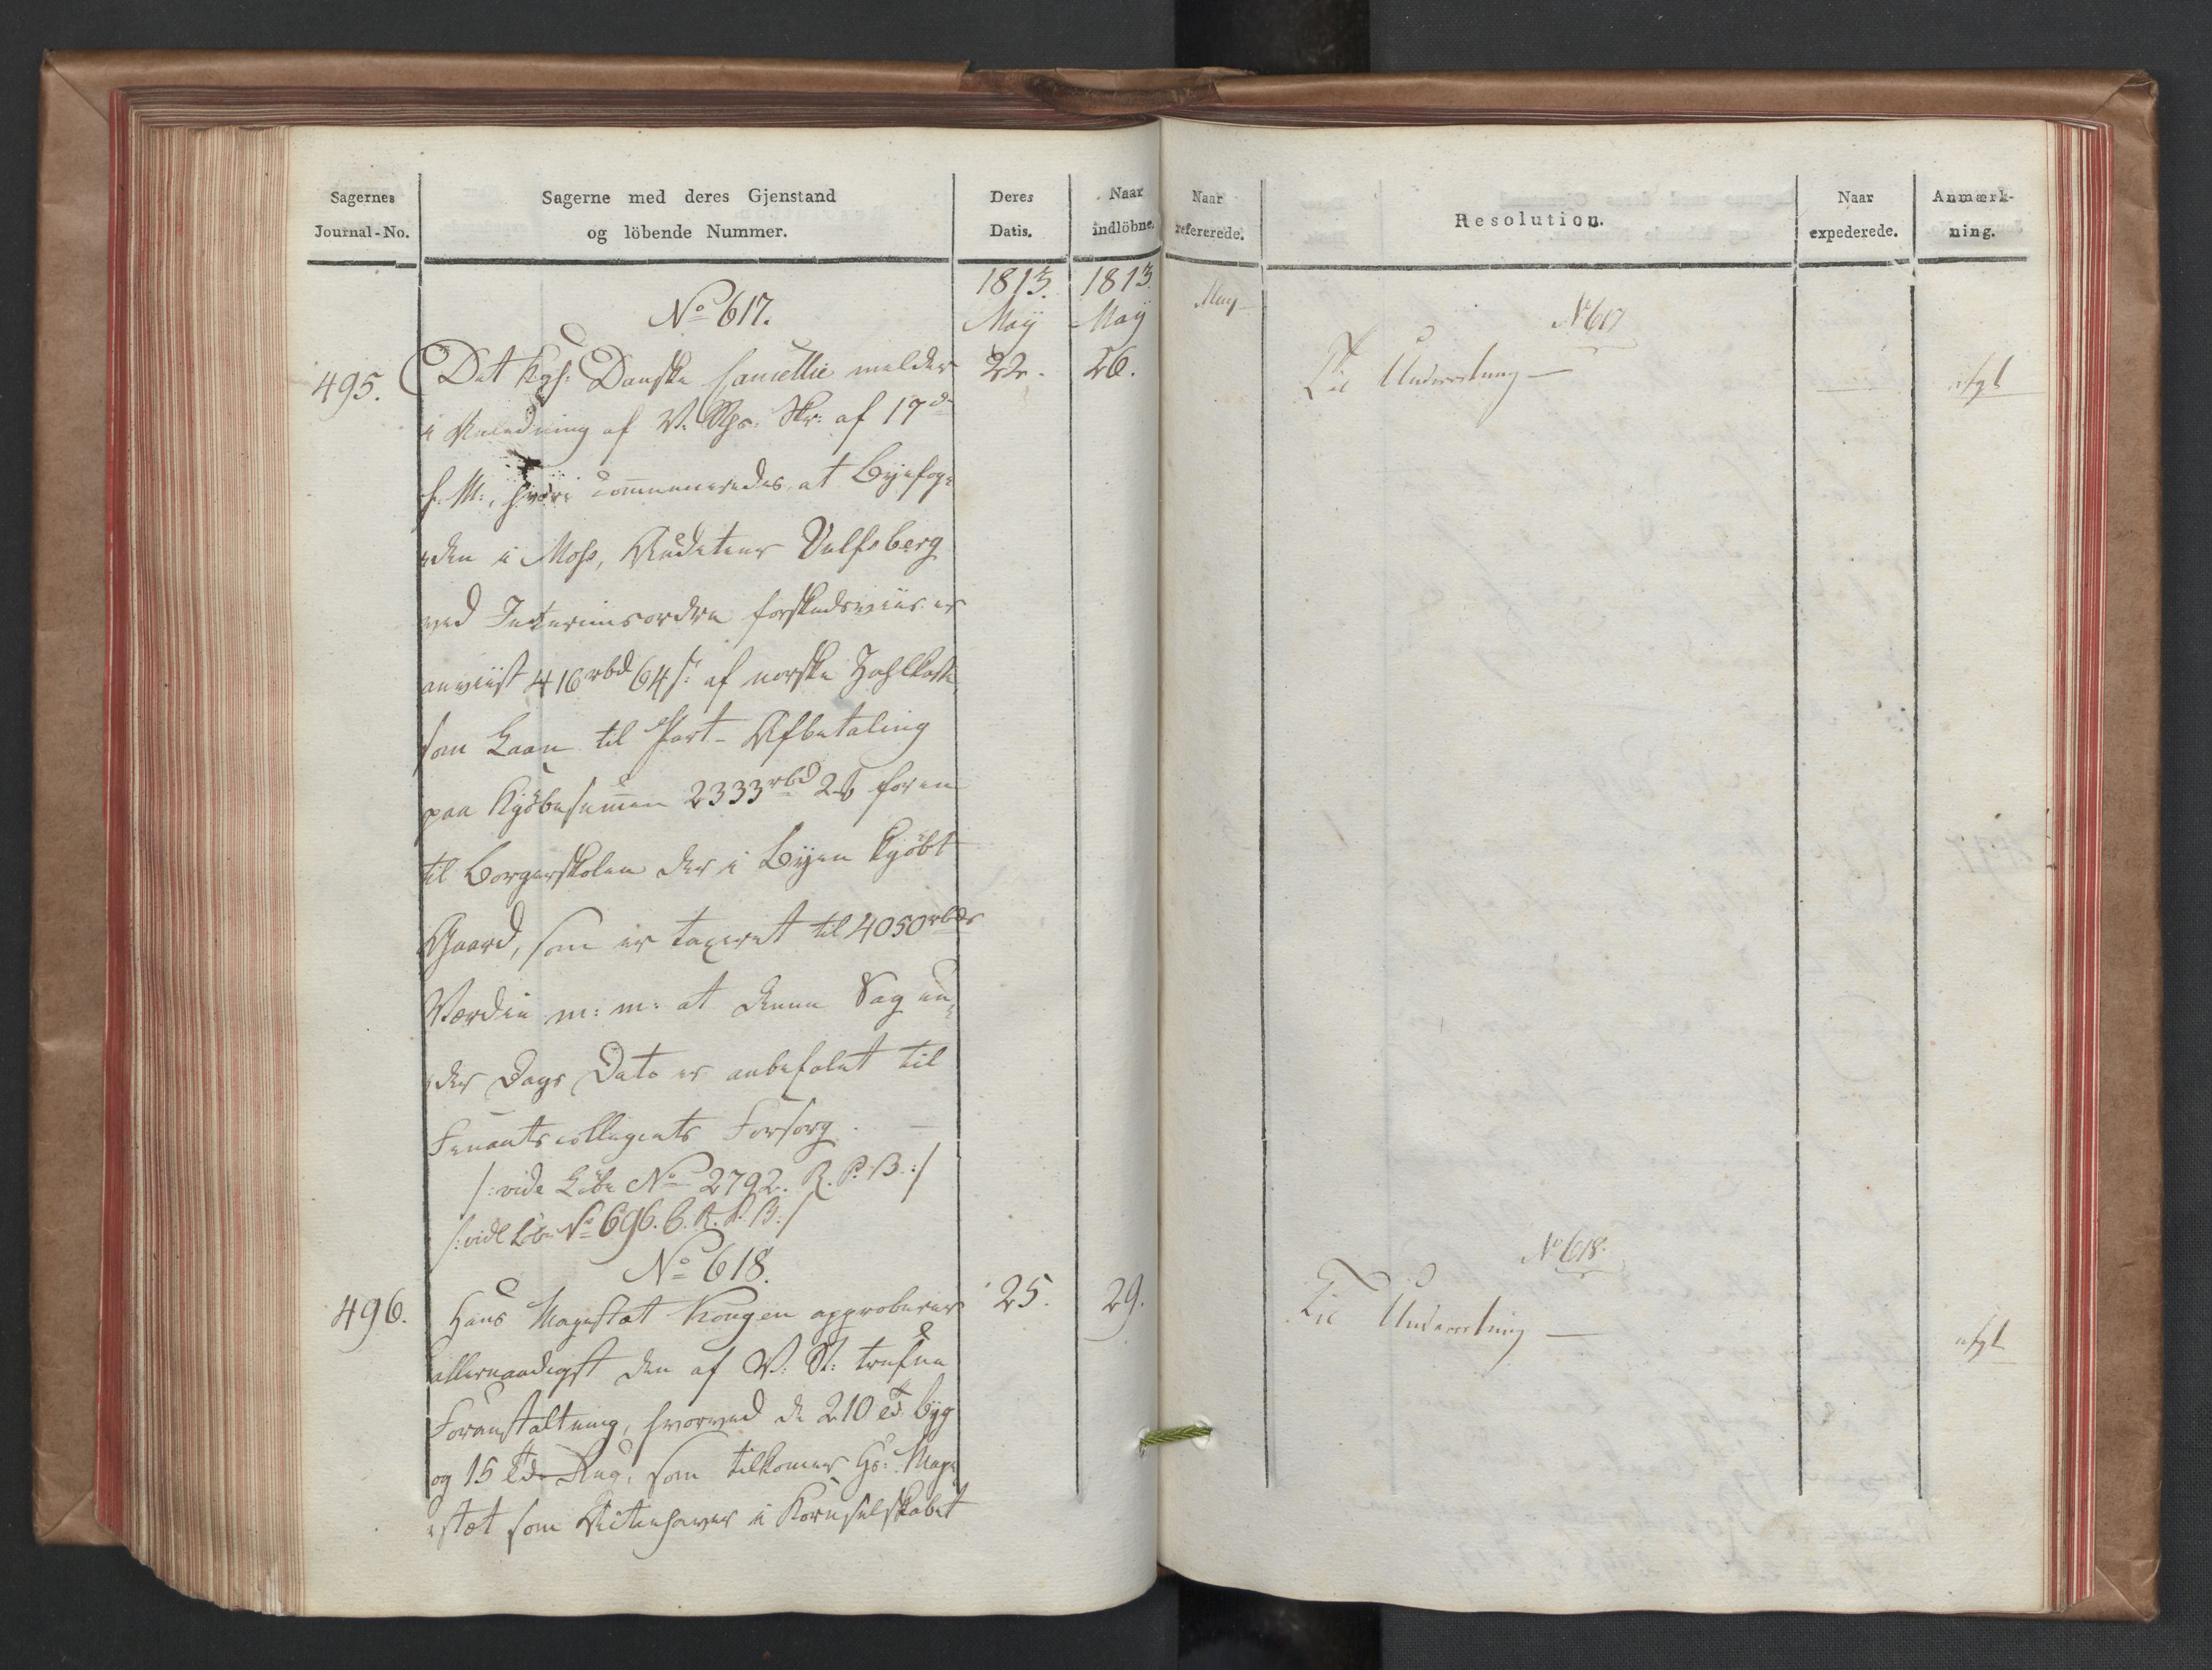 Sagernes
Journal-No.
Sagerne med deres Gjenstand
og löbende Nummer.
Deres
Datis.
Naar
indlöbne.
1813. 1813.
May May
No 617.
495. Det kgl: Danske Cancellie melder 22. 26.
i Anledning af V. Rgs. Skr: af 17de
f. M., hvori communiceredes, at Byefog-
den i Moss, Auditeur Vulfsberg
ved Interimsordre forskudsviis er
anviist 416 rbd 64 s: af norske Zahlkasse,
som Laan til Part-Afbetaling
paa Kjöbesummen 2333 rbd 2 for en
til Borgerskolen der i Byen kjöbt
Gaard, som er taxeret til 4050 rbds
Værdie m: m: at denne Sag un-
der Dags Dato er anbefalet til
Finantscollegiets Forsorg. —
/:vide Löbe No 2792. R. P. B.:/
/:vide Lb. No 696. C. R. P. B:/
No 618.
496. Hans Majestæt Kongen approberer 25. 29.
allernaadigst den af V: St: trufne
Foranstaltning, hvorved de 210 Td. Byg
og 15 Td. Rug, som tilkommer Hs: Maje-
stæt som Actiehaver i Kornselskabet
Naar
refererede.
Resolution.
Naar
expederede.
Anmærk-
ning.
May
No 617
Til Underretning — afgl
No 618.
Til Underretning — afgl